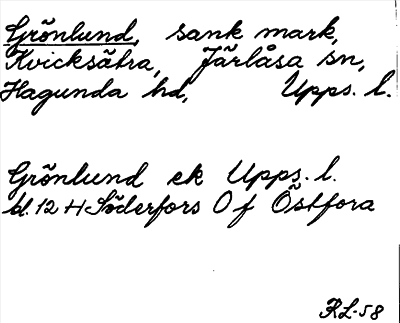 Grönlund, sank mark,
Kvicksätra, Järlåsa sn,
Hagunda hd, Upps. l.
Grönlund ek Upps. l.
bl. 12 H Söderfors O f Östfora
RL-58